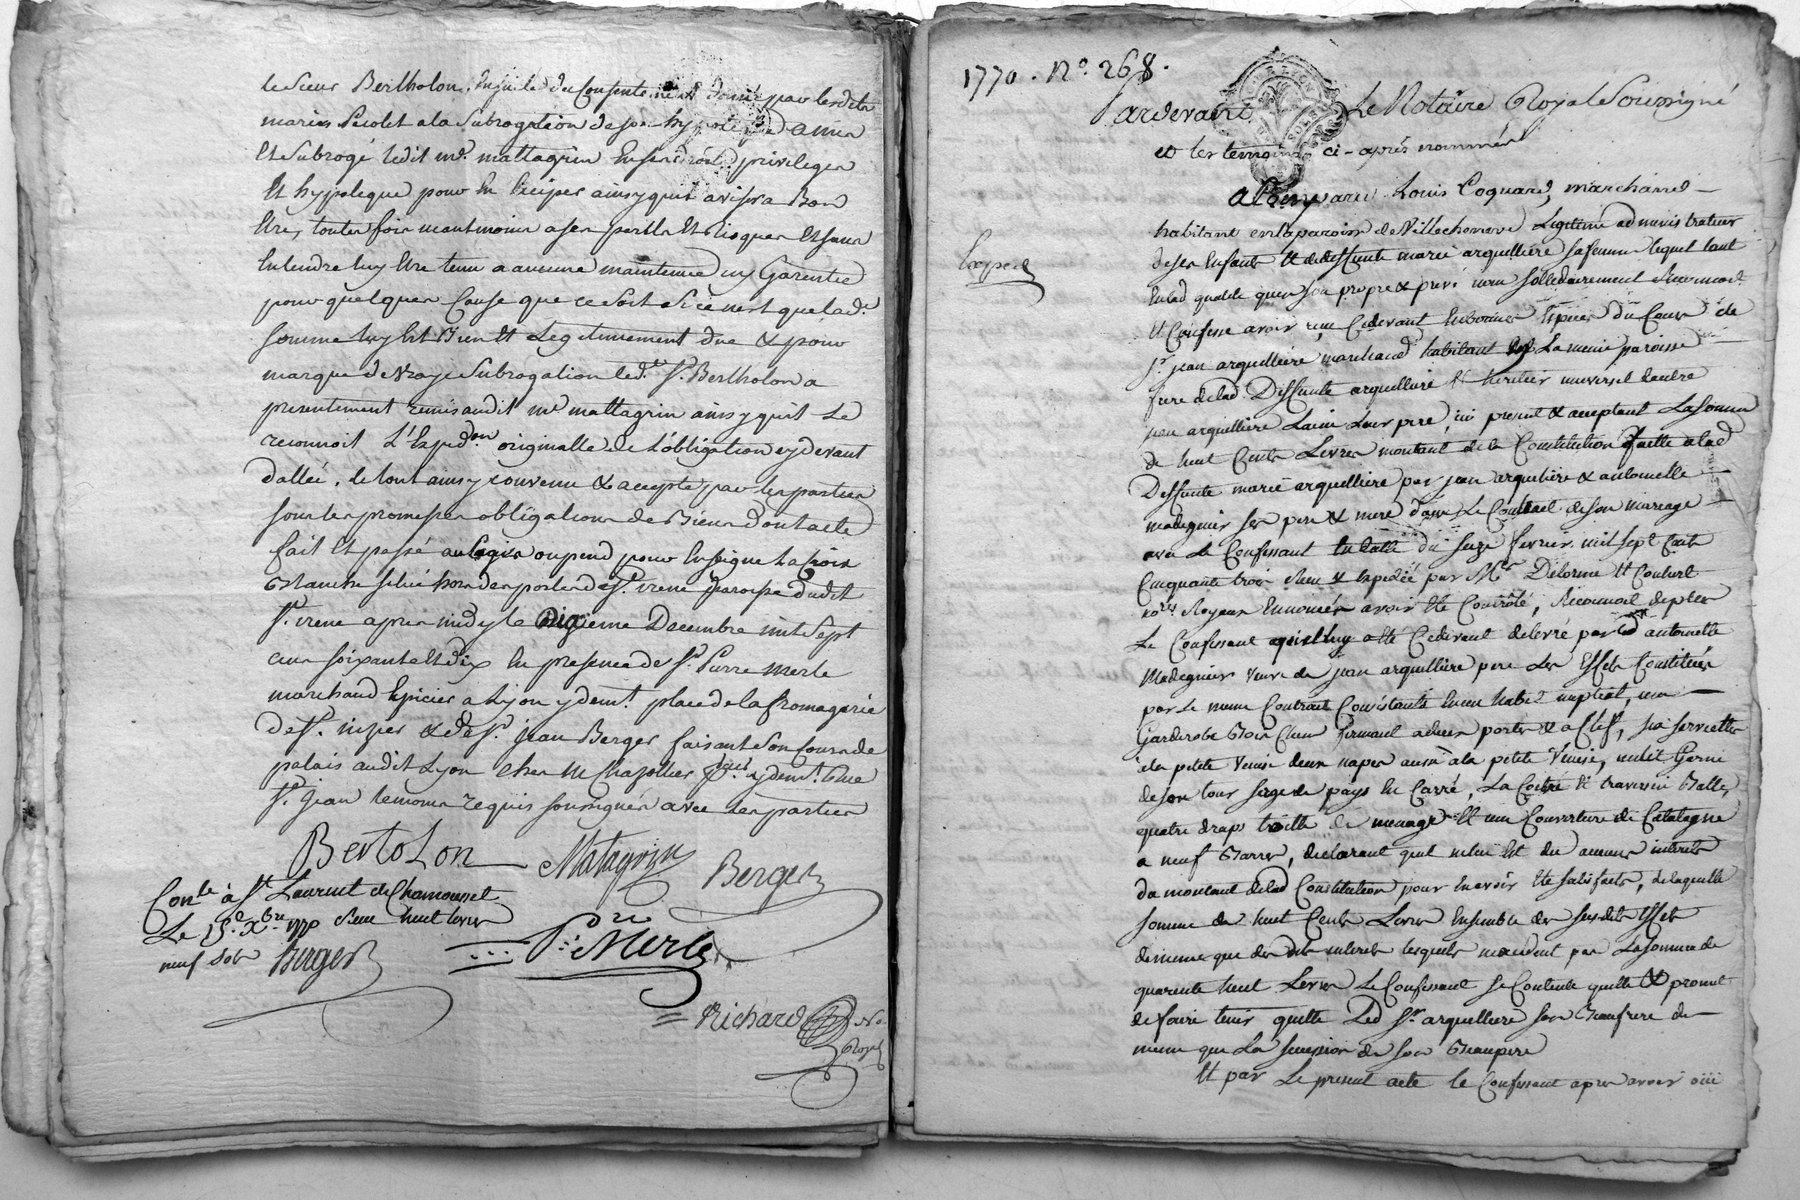 le sieur Bertholon, ensuite du Consentement donné par lesdits
mariés Picolet a la subrogation de son hypoteque a mis
Et subrogé ledit md. mattagrin En ses droits, privileges
Et hypoteque pour En Exciper ainsy quil avisera Bon
Etre, toutes fois neantmoins a ses perils Et Risques Et sans
Entendre luy Etre tenu a aucune maintenue ny Garentie
pour quelques Cause que ce soit si ce n'est que lad.
somme luy Est Bien Et Legitimement due & pour
marque de vraye subrogation led. Sr. Bertholon a
presentement remis audit md. mattagrin ainsy quil Le
reconnoit L'Expedon. originalle de L'obligation cy devant
dattée, le tout ainsy convenu & accepté par les parties
sous les promesses obligations de Biens dont acte
fait Et passé au logis ou pend pour Enseigne la Croix
Blanche situé hors des portes de St. irené paroisse dudit
St. irené apres midy le dixieme Decembre mil sept
cens soixante Et dix En presence de Sr. Pierre Merle
marchand Epicier a Lyon y demt. place de la fromagerie
de St. nizier & de Sr. jean Berger faisant son cours de
palais audit Lyon chez Me Chazottier y demt. Rue
St. jean temoins requis soussignés avec les parties
BertoLon Matagrin Berger
Conlé à St. Laurent de Chamousset
Le 15e. Xbre 1770 Reçu huit livres
neuf sols Berger
Pre Merle
Richard No.
Royal
1770. No. 268.
Pardevant Le Notaire Royal Soussigné
et les temoins ci-après nommés
Expedé
a Comparu Louis Coquard, marchand
habitant en la paroisse de Villechenève Legitime administrateur
de ses Enfants Et de deffunte marie arquilliere sa femme lequel tant
En lad qualité qu'en son propre & privé nom sollidairement Reconnoit
Et Confesse avoir reçu Cidevant En bonnes Especes du Cours de
Sr. jean arquilliere marchand habitant La meme paroisse
frere de lad. Deffunte arquilliere Et heritier universel d'autre
jean arquilliere Laîné Leur pere, ici present & acceptant La somme
de huit Cents Livres montant de la Constitution faitte a lad
Deffunte marie arquilliere par jean arquilliere & antoinette
madignier ses pere & mere dans Le Contract de son mariage
avec Le Confessant En datte du seize fevrier mil sept Cents
Cinquante trois Reçu & Expedié par Me Delorme Et Coubert
nores. Royaux Ennoncés avoir Eté Controlé, Reconnoit de plus
Le Confessant qu'il luy a Eté Cidevant delivré par lad antoinette
Madignier veuve de jean arquilliere pere Les Effets Constitués
par Le meme Contract Consistants En un habit nuptial, un
Garderobe Bois Chene fermant a deux portes & a Clef, six serviettes
à la petite Venise deux napes aussi à la petite Venise, un lit Garni
de son tour serge de pays En Carré, La Coitre Et traversin Balles
quatre draps toille de menage Et une Couverture de Catalogne
a neuf Barres, declarant quil ne lui Est du aucuns interets
du montant de lad Constitution pour En avoir Eté satisfait, de laquelle
somme de huit Cents Livres Ensemble de ses dits Effets
de meme que des dits interets lesquels n'excedent pas La somme de
quarente huit Livres Le Confessant se Contente quitte & promet
de faire tenir quitte Led Sr. arquilliere son Beaufrere de
meme que La succession de son Beaupere
Et par Le present acte le Confessant apres avoir oüi